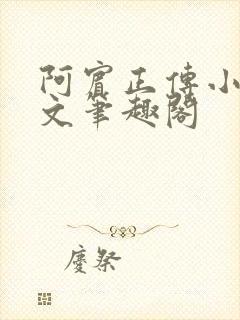 阿賓正傳小
文筆趣閣
慶祭